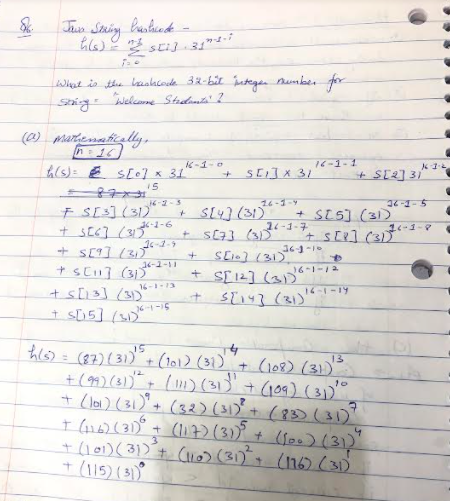 Q6. Java String hashcode -
h(s) = n-1 Σ i=0 s[i] · 31^n-1-i
What is the hashcode 32-bit integer number for
string = "Welcome Students"?
(a) Mathematically,
n = 16
h(s) = S[0] × 31^16-1-0 + S[1] × 31^16-1-1 + S[2] 31^16-1-2
= 87 × 31^15
+ S[3] (31)^16-1-3 + S[4] (31)^16-1-4 + S[5] (31)^16-1-5
+ S[6] (31)^16-1-6 + S[7] (31)^16-1-7 + S[8] (31)^16-1-8
+ S[9] (31)^16-1-9 + S[10] (31)^16-1-10
+ S[11] (31)^16-1-11 + S[12] (31)^16-1-12
+ S[13] (31)^16-1-13 + S[14] (31)^16-1-14
+ S[15] (31)^16-1-15
h(s) = (87) (31)^15 + (101) (31)^14 + (108) (31)^13
+ (99) (31)^12 + (111) (31)^11 + (109) (31)^10
+ (101) (31)^9 + (32) (31)^8 + (83) (31)^7
+ (116) (31)^6 + (117) (31)^5 + (100) (31)^4
+ (101) (31)^3 + (110) (31)^2 + (116) (31)^1
+ (115) (31)^0